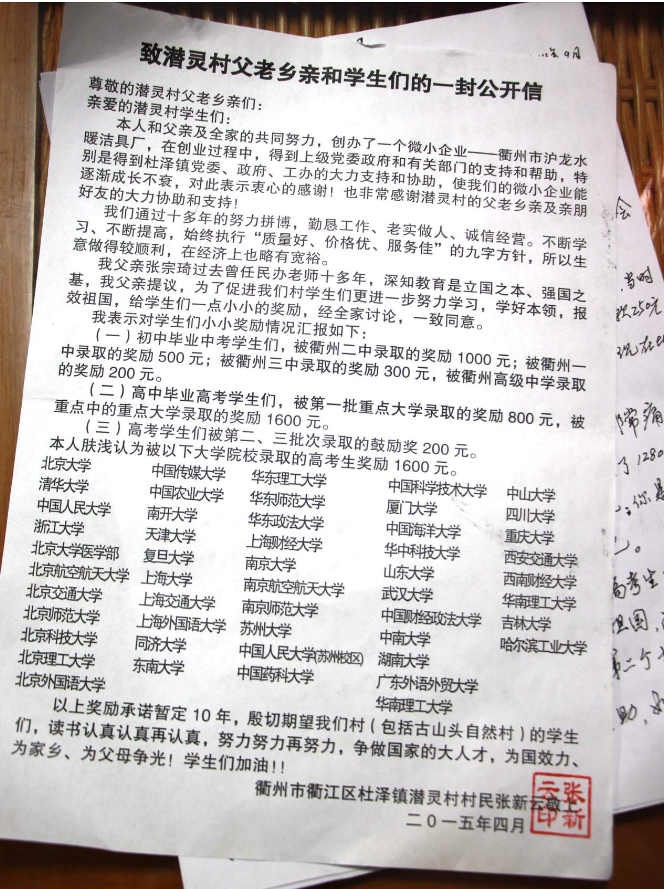 致潜灵村父老乡亲和学生们的一封公开信
尊敬的潜灵村父老乡亲们：
亲爱的潜灵村学生们：
本人和父亲及全家的共同努力，创办了一个微小企业——衢州市沪龙水
暖洁具厂，在创业过程中，得到上级党委政府和有关部门的支持和帮助，特
别是得到杜泽镇党委、政府、工办的大力支持和协助，使我们的微小企业能
逐渐成长不衰，对此表示衷心的感谢！也非常感谢潜灵村的父老乡亲及亲朋
好友的大力协助和支持！
我们通过十多年的努力拼博，勤恳工作、老实做人、诚信经营。不断学
习、不断提高，始终执行“质量好、价格优、服务佳”的九字方针，所以生
意做得较顺利，在经济上也略有宽裕。
我父亲张宗琦过去曾任民办老师十多年，深知教育是立国之本、强国之
基，我父亲提议，为了促进我们村学生们更进一步努力学习，学好本领，报
效祖国，给学生们一点小小的奖励，经全家讨论，一致同意。
我表示对学生们小小奖励情况汇报如下：
（一）初中毕业中考学生们，被衢州二中录取的奖励 1000 元；被衢州一
中录取的奖励 500 元；被衢州三中录取的奖励 300 元，被衢州高级中学录取
的奖励 200 元。
（二）高中毕业高考学生们，被第一批重点大学录取的奖励 800 元，被
重点中的重点大学录取的奖励 1600 元。
（三）高考学生们被第二、三批次录取的鼓励奖 200 元。
本人肤浅认为被以下大学院校录取的高考生奖励 1600 元。
北京大学 中国传媒大学 华东理工大学 中国科学技术大学 中山大学
清华大学 中国农业大学 华东师范大学 厦门大学 四川大学
中国人民大学 南开大学 华东政法大学 中国海洋大学 重庆大学
浙江大学 天津大学 上海财经大学 华中科技大学 西安交通大学
北京大学医学部 复旦大学 南京大学 山东大学 西南财经大学
北京航空航天大学 上海大学 南京航空航天大学 武汉大学 华南理工大学
北京交通大学 上海交通大学 南京师范大学 中国财经政法大学 吉林大学
北京师范大学 上海外国语大学 苏州大学 中南大学 哈尔滨工业大学
北京科技大学 同济大学 中国人民大学(苏州校区) 湖南大学
北京理工大学 东南大学 中国药科大学 广东外语外贸大学
北京外国语大学 华南理工大学
以上奖励承诺暂定 10 年，殷切期望我们村（包括古山头自然村）的学生
们，读书认真认真再认真，努力努力再努力，争做国家的大人才，为国效力、
为家乡、为父母争光！学生们加油！！
衢州市衢江区杜泽镇潜灵村村民张新云敬上
二０一五年四月
张新云印
9月
会
当时
250元
常痛
了1280
你是
高考生
祖国，
第二个
助，